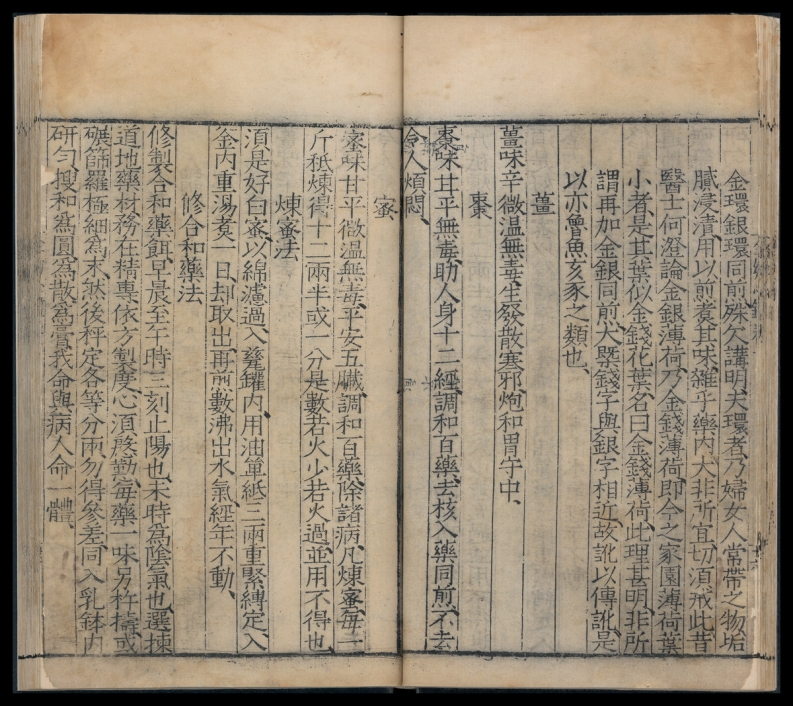 金環銀環同前殊欠講明夫環者乃婦女人常帶之物垢
膩浸漬用以煎煑其味雜乎藥内大非所宜切須戒此昔
醫士何澄論金銀薄荷乃金錢薄荷即今之家園薄荷葉
小者是其葉似金錢花葉名曰金錢薄荷此理甚明非所
謂再加金銀同煎大槩錢字與銀字相近故訛以傳訛是
以亦魯魚亥豕之類也
薑
薑味辛微温無毒生發散寒邪炮和胃守中
棗
棗味甘平無毒助人身十二經調和百藥去核入藥同煎不去
令人煩悶
蜜
蜜味甘平微温無毒平安五臟調和百藥除諸病凡煉蜜每一
斤秪煉得十二兩半或一分是數若火少若火過並用不得也
煉蜜法
須是好白蜜以綿濾過入甆鑵内用油單紙三兩重緊縛定入
釜内重湯煮一日却取出再煎數沸出水氣經年不動
修合和藥法
修製合和藥餌早晨至午時三刻止陽也未時爲陰氣也選揀
道地藥材務在精專依方製度心須殷勤每藥一味另杵擣或
碾篩羅極細爲末然後秤定各等分兩勿得參差同入乳鉢内
研勻搜和爲圓爲散爲膏我命與病人命一體